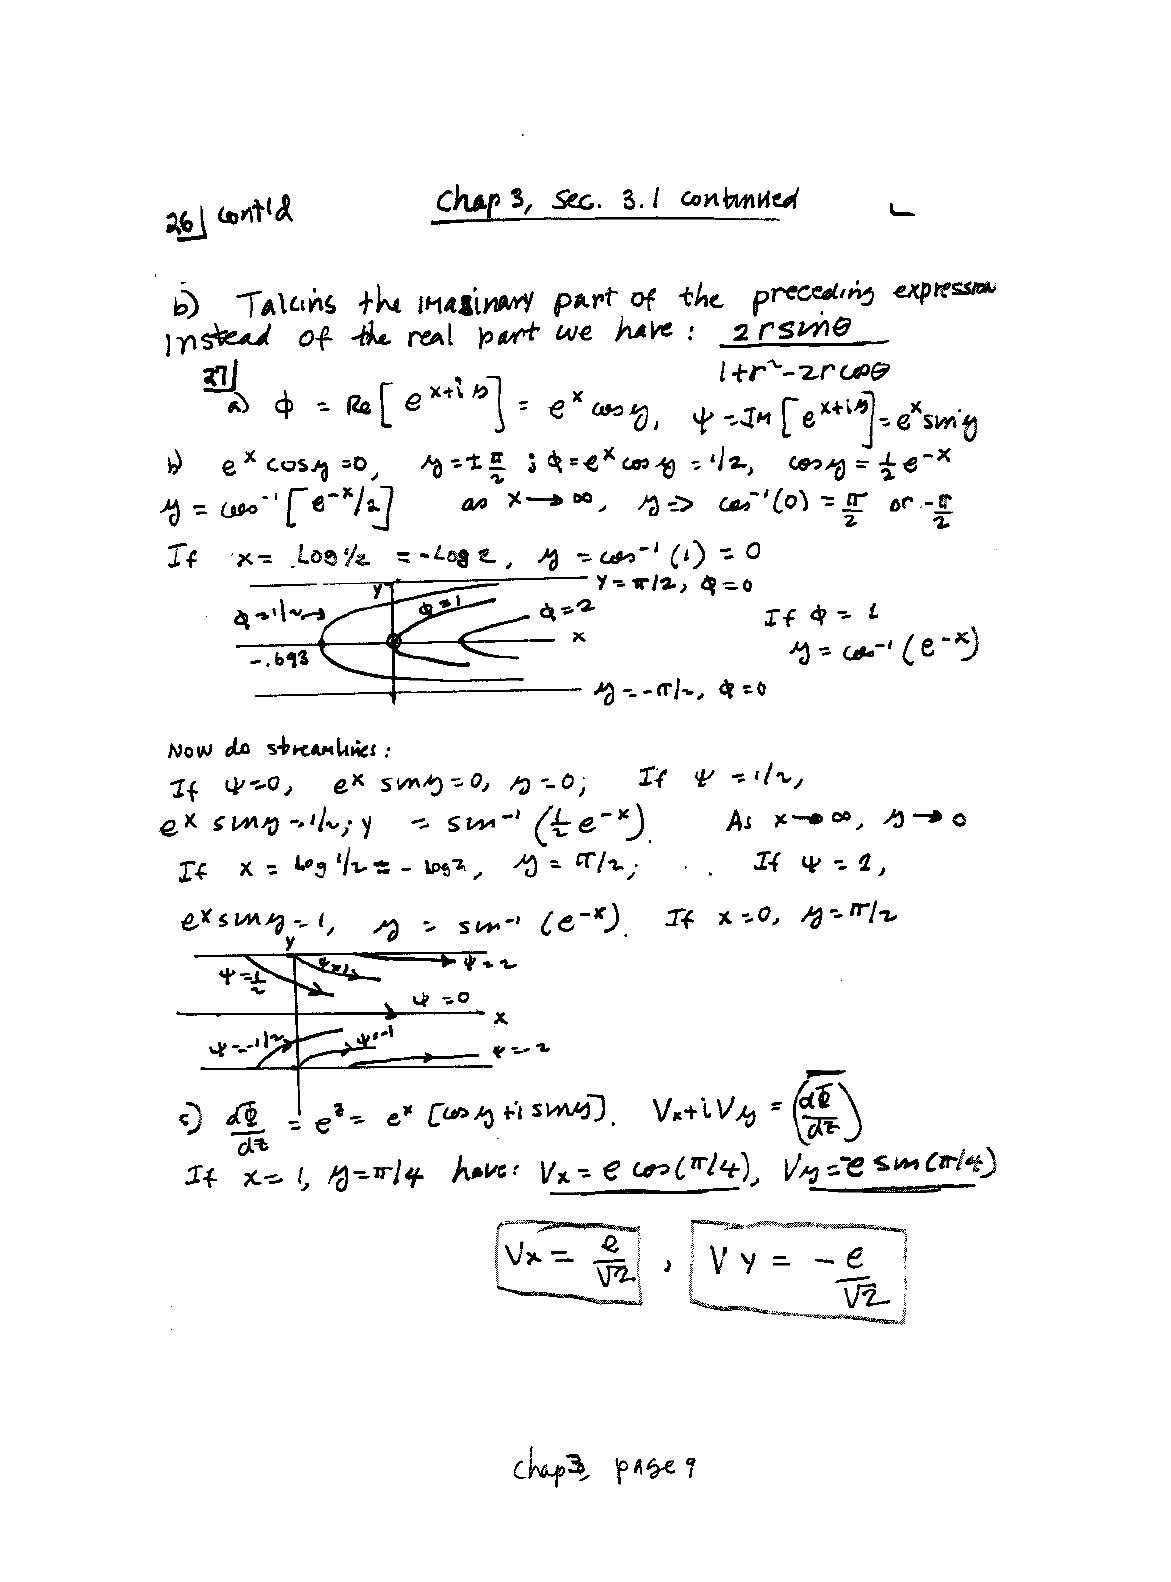 26 cont'd
Chap 3, Sec. 3.1 continued
b) Taking the imaginary part of the preceding expression
instead of the real part we have: 2 r sin θ / (1+r²-2r cos θ)
27
a) φ = Re[e^{x+iy}] = e^x cos y, ψ = Im[e^{x+iy}] = e^x sin y
b) e^x cos y = 0, y = ± π/2 ; φ = e^x cos y = 1/2, cos y = 1/2 e^{-x}
y = cos⁻¹[e^{-x}/2] as x → ∞, y ⇒ cos⁻¹(0) = π/2 or -π/2
If x = Log 1/2 = -Log 2, y = cos⁻¹(1) = 0
y
Y = π/2, φ = 0
φ = 1/2 →
φ = 1
φ = 2
x
-.693
If φ = 1
y = cos⁻¹(e^{-x})
y = -π/2, φ = 0
Now do streamlines:
If ψ = 0, e^x sin y = 0, y = 0; If ψ = 1/2,
e^x sin y = 1/2; y = sin⁻¹(1/2 e^{-x}). As x → ∞, y → 0
If x = Log 1/2 = - log 2, y = π/2; If ψ = 1,
e^x sin y = 1, y = sin⁻¹(e^{-x}). If x = 0, y = π/2
y
ψ = 1/2
ψ = 1
ψ = 2
ψ = 0
x
ψ = -1/2
ψ = -1
ψ = -2
c) dΦ/dz = e^z = e^x [cos y + i sin y]. Vx + i Vy = \overline{(dΦ/dz)}
If x = 1, y = π/4 have: Vx = e cos(π/4), Vy = -e sin(π/4)
Vx = e/√2 , Vy = -e/√2
Chap 3, page 9